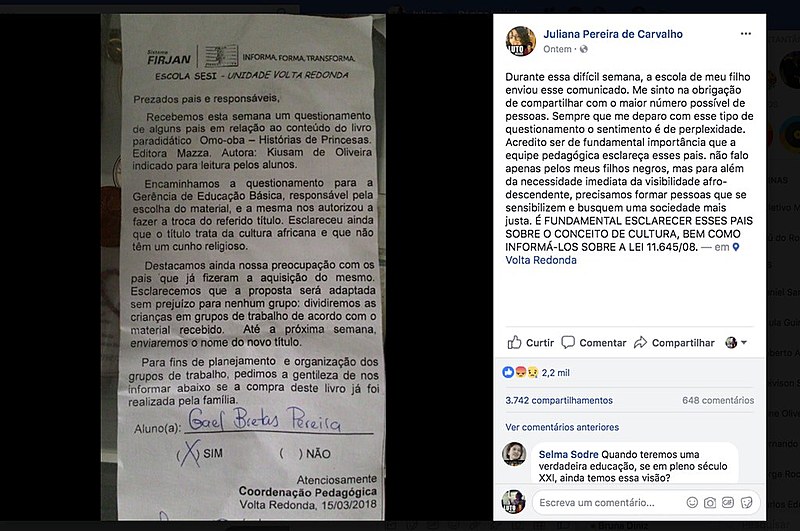 Sistema
FIRJAN
INFORMA, FORMA, TRANSFORMA.
ESCOLA SESI - UNIDADE VOLTA REDONDA
Prezados pais e responsáveis,
Recebemos esta semana um questionamento
de alguns pais em relação ao conteúdo do livro
paradidático Omo-oba – Histórias de Princesas.
Editora Mazza. Autora: Kiusam de Oliveira
indicado para leitura pelos alunos.
Encaminhamos a questionamento para a
Gerência de Educação Básica, responsável pela
escolha do material, e a mesma nos autorizou a
fazer a troca do referido título. Esclareceu ainda
que o título trata da cultura africana e que não
têm um cunho religioso.
Destacamos ainda nossa preocupação com os
pais que já fizeram a aquisição do mesmo.
Esclarecemos que a proposta será adaptada
sem prejuízo para nenhum grupo: dividiremos as
crianças em grupos de trabalho de acordo com o
material recebido. Até a próxima semana,
enviaremos o nome do novo título.
Para fins de planejamento e organização dos
grupos de trabalho, pedimos a gentileza de nos
informar abaixo se a compra deste livro já foi
realizada pela família.
Aluno(a): Gael Bretas Pereira
(X) SIM ( ) NÃO
Atenciosamente
Coordenação Pedagógica
Volta Redonda, 15/03/2018
Juliana Pereira de Carvalho
Ontem ·
Durante essa difícil semana, a escola de meu filho
enviou esse comunicado. Me sinto na obrigação
de compartilhar com o maior número possível de
pessoas. Sempre que me deparo com esse tipo de
questionamento o sentimento é de perplexidade.
Acredito ser de fundamental importância que a
equipe pedagógica esclareça esses pais. não falo
apenas pelos meus filhos negros, mas para além
da necessidade imediata da visibilidade afro-
descendente, precisamos formar pessoas que se
sensibilizem e busquem uma sociedade mais
justa. É FUNDAMENTAL ESCLARECER ESSES PAIS
SOBRE O CONCEITO DE CULTURA, BEM COMO
INFORMÁ-LOS SOBRE A LEI 11.645/08. — em
Volta Redonda
Curtir Comentar Compartilhar
2,2 mil
3.742 compartilhamentos 648 comentários
Ver comentários anteriores
Selma Sodre Quando teremos uma
verdadeira educação, se em pleno século
XXI, ainda temos essa visão?
Escreva um comentário...
LUTO
LUTO